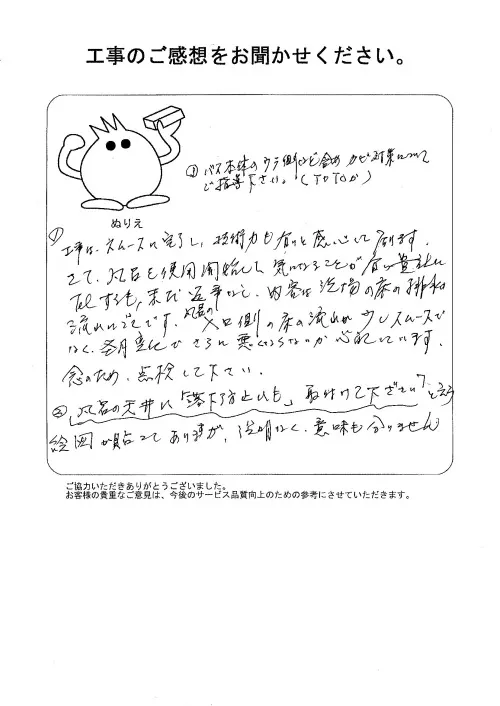 工事のご感想をお聞かせください。
③ バス本体のウラ側など含め カビ対策について
ご指導下さい。(TOTOか)
ぬりえ
① 工事は、スムースに完了し、技術力も有りと感心して居ります。
さて、風呂を使用開始して、気になることが有り貴社に
TELするも、未だ返事なし、内容は洗場の床の排水
流れのことです。風呂の入口側の床の流れが少しスムースで
なく、変化でさらに悪くならないか心配しています。
念のため、点検して下さい。
② 風呂の天井に「落下防止にも」取付けて下さい
絵図が貼ってありますが、説明なく、意味も分りません
ご協力いただきありがとうございました。
お客様の貴重なご意見は、今後のサービス品質向上のための参考にさせていただきます。